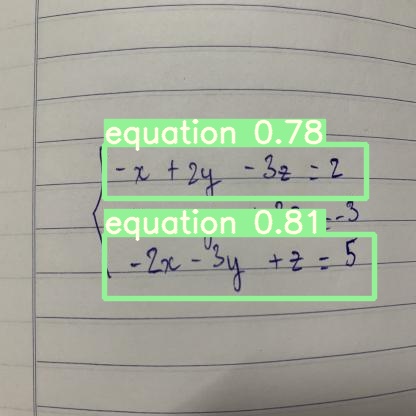 equation 0.78
-x + 2y - 3z = 2
equation 0.81
= -3
-2x - 3y + z = 5